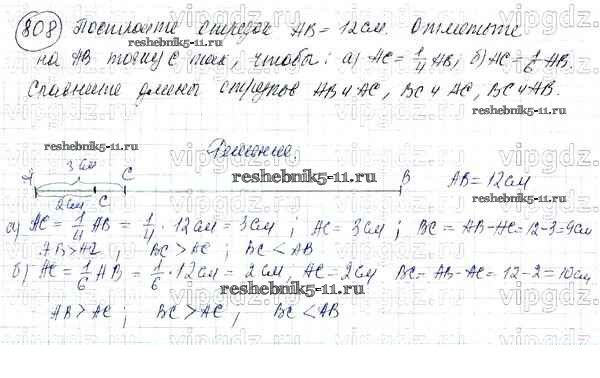 808 Постройте отрезок AB = 12 см. Отметьте
на AB точку C так, чтобы: а) AC = 1/4 AB; б) AC = 1/6 AB.
Сравните длины отрезков AB и AC, BC и AC, BC и AB.
Решение.
3 см
A C C B AB = 12 см
2 см
а) AC = 1/4 AB = 1/4 · 12 см = 3 см; AC = 3 см; BC = AB - AC = 12 - 3 = 9 см
AB > AC, BC > AC; BC < AB
б) AC = 1/6 AB = 1/6 · 12 см = 2 см, AC = 2 см BC = AB - AC = 12 - 2 = 10 см
AB > AC; BC > AC; BC < AB
vipgdz.com
reshebnik5-11.ru